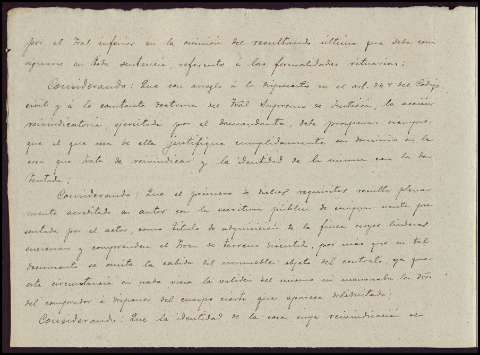 por el Tral inferior en la omisión del resultando último que debe con
signarse en toda sentencia, referente á las formalidades rituarias;
Considerando: Que con arreglo á lo dispuesto en el art. 348 del Código
civil y á la constante doctrina del Tral Supremo de Justicia, la acción
reivindicatoria, ejercitada por el demandante, debe prosperar siempre
que el que usa de ella justifique cumplidamente su dominio en la
cosa que trata de reivindicar y la identidad de la misma con la de
tentada;
Considerando: Que el primero de dichos requisitos resulta plena
mente acreditado en autos con la escritura pública de compra venta pre
sentada por el actor, como título de adquisición de la finca cuyos linderos
encierran y comprenden el trozo de terreno discutido, por más que en tal
documento se omita la cabida del inmueble objeto del contrato, ya que
esta circunstancia en nada vicia la validez del mismo ni menoscaba los dros
del comprador á disponer del cuerpo cierto que aparece deslindado;
Considerando: Que la identidad de la cosa cuya reivindicación se